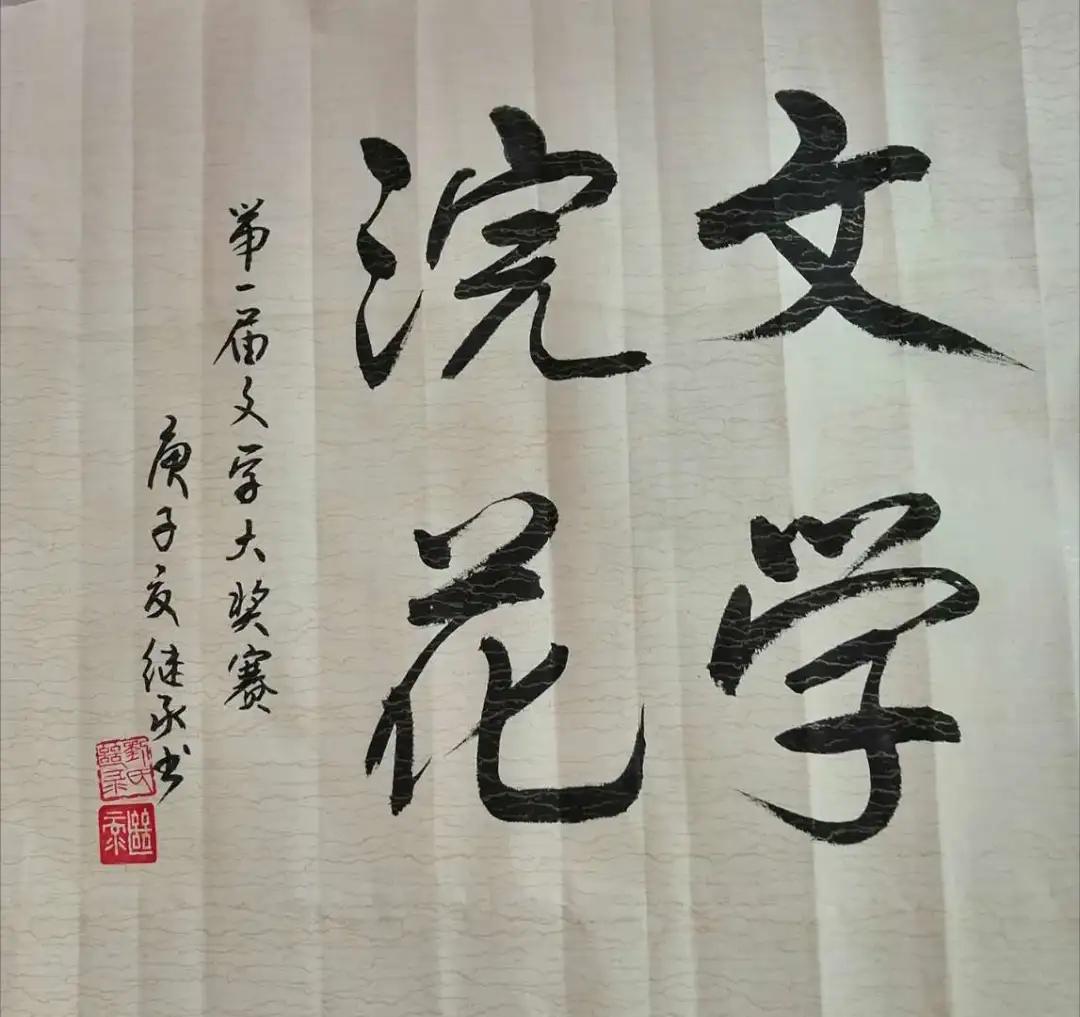 文学
浣花
第一届文学大奖赛
庚子夏继承书